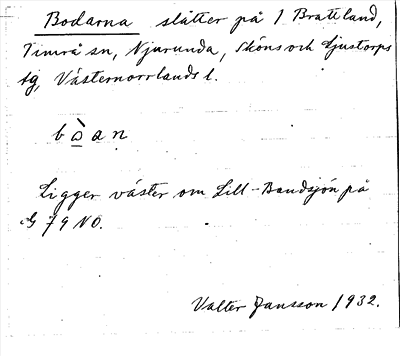 Bodarna slåtter på 1 Brattland,
Timrå sn, Njurunda, Sköns och Ljustorps
tg, Västernorrlands l.
bò̲an
Ligger väster om Lill-Bandsjön på
G 79 NO.
Valter Jansson 1932.